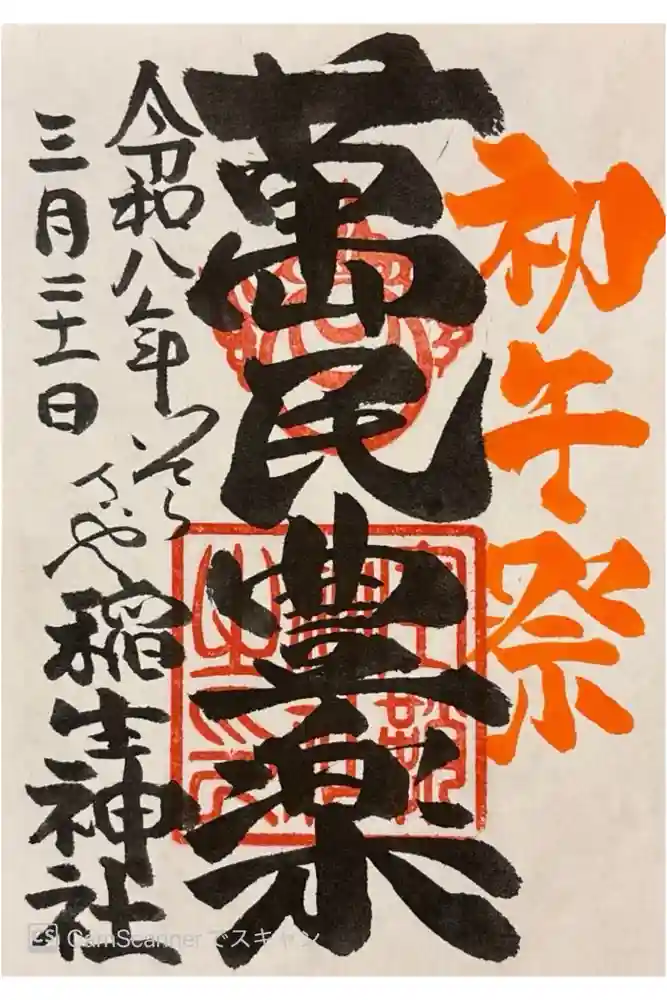 初午祭
萬民豊楽
令和八年
三月二十一日
稲生神社
CS CamScanner でスキャン